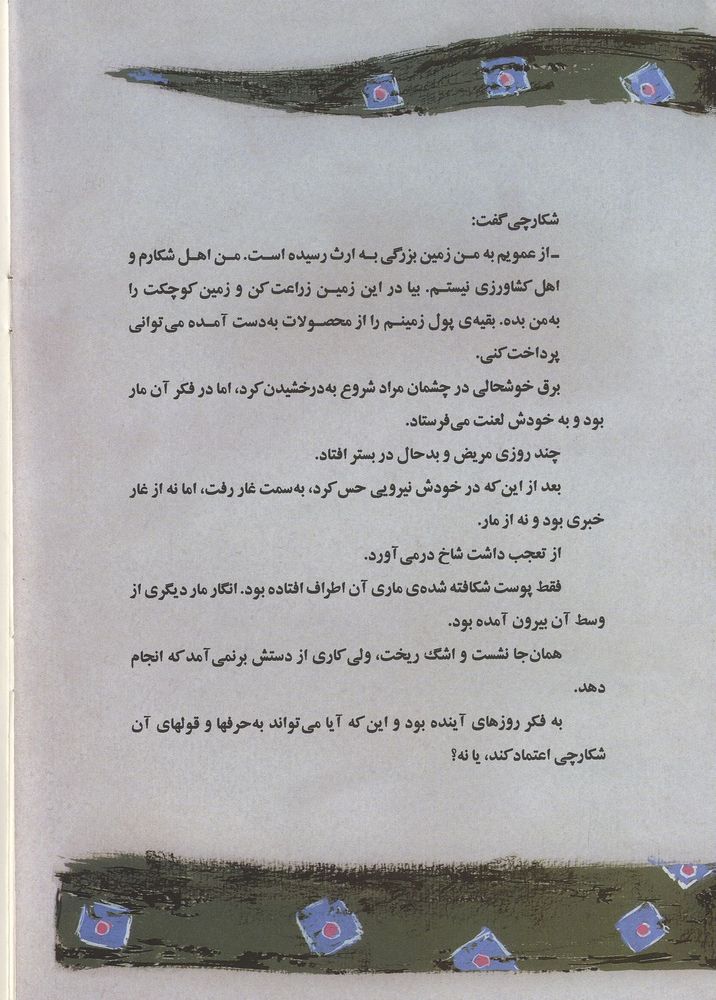 شکارچی گفت:
ـ از عمویم به من زمین بزرگی به ارث رسیده است. من اهل شکارم و
اهل کشاورزی نیستم. بیا در این زمین زراعت کن و زمین کوچکت را
به‌من بده. بقیه‌ی پول زمینم را از محصولات به‌دست آمده می‌توانی
پرداخت کنی.
برق خوشحالی در چشمان مراد شروع به‌درخشیدن کرد، اما در فکر آن مار
بود و به خودش لعنت می‌فرستاد.
چند روزی مریض و بدحال در بستر افتاد.
بعد از این‌که در خودش نیرویی حس کرد، به‌سمت غار رفت، اما نه از غار
خبری بود و نه از مار.
از تعجب داشت شاخ درمی‌آورد.
فقط پوست شکافته شده‌ی ماری آن اطراف افتاده بود. انگار مار دیگری از
وسط آن بیرون آمده بود.
همان‌جا نشست و اشگ ریخت، ولی کاری از دستش برنمی‌آمد که انجام
دهد.
به فکر روزهای آینده بود و این‌که آیا می‌تواند به‌حرفها و قولهای آن
شکارچی اعتماد کند، یا نه؟